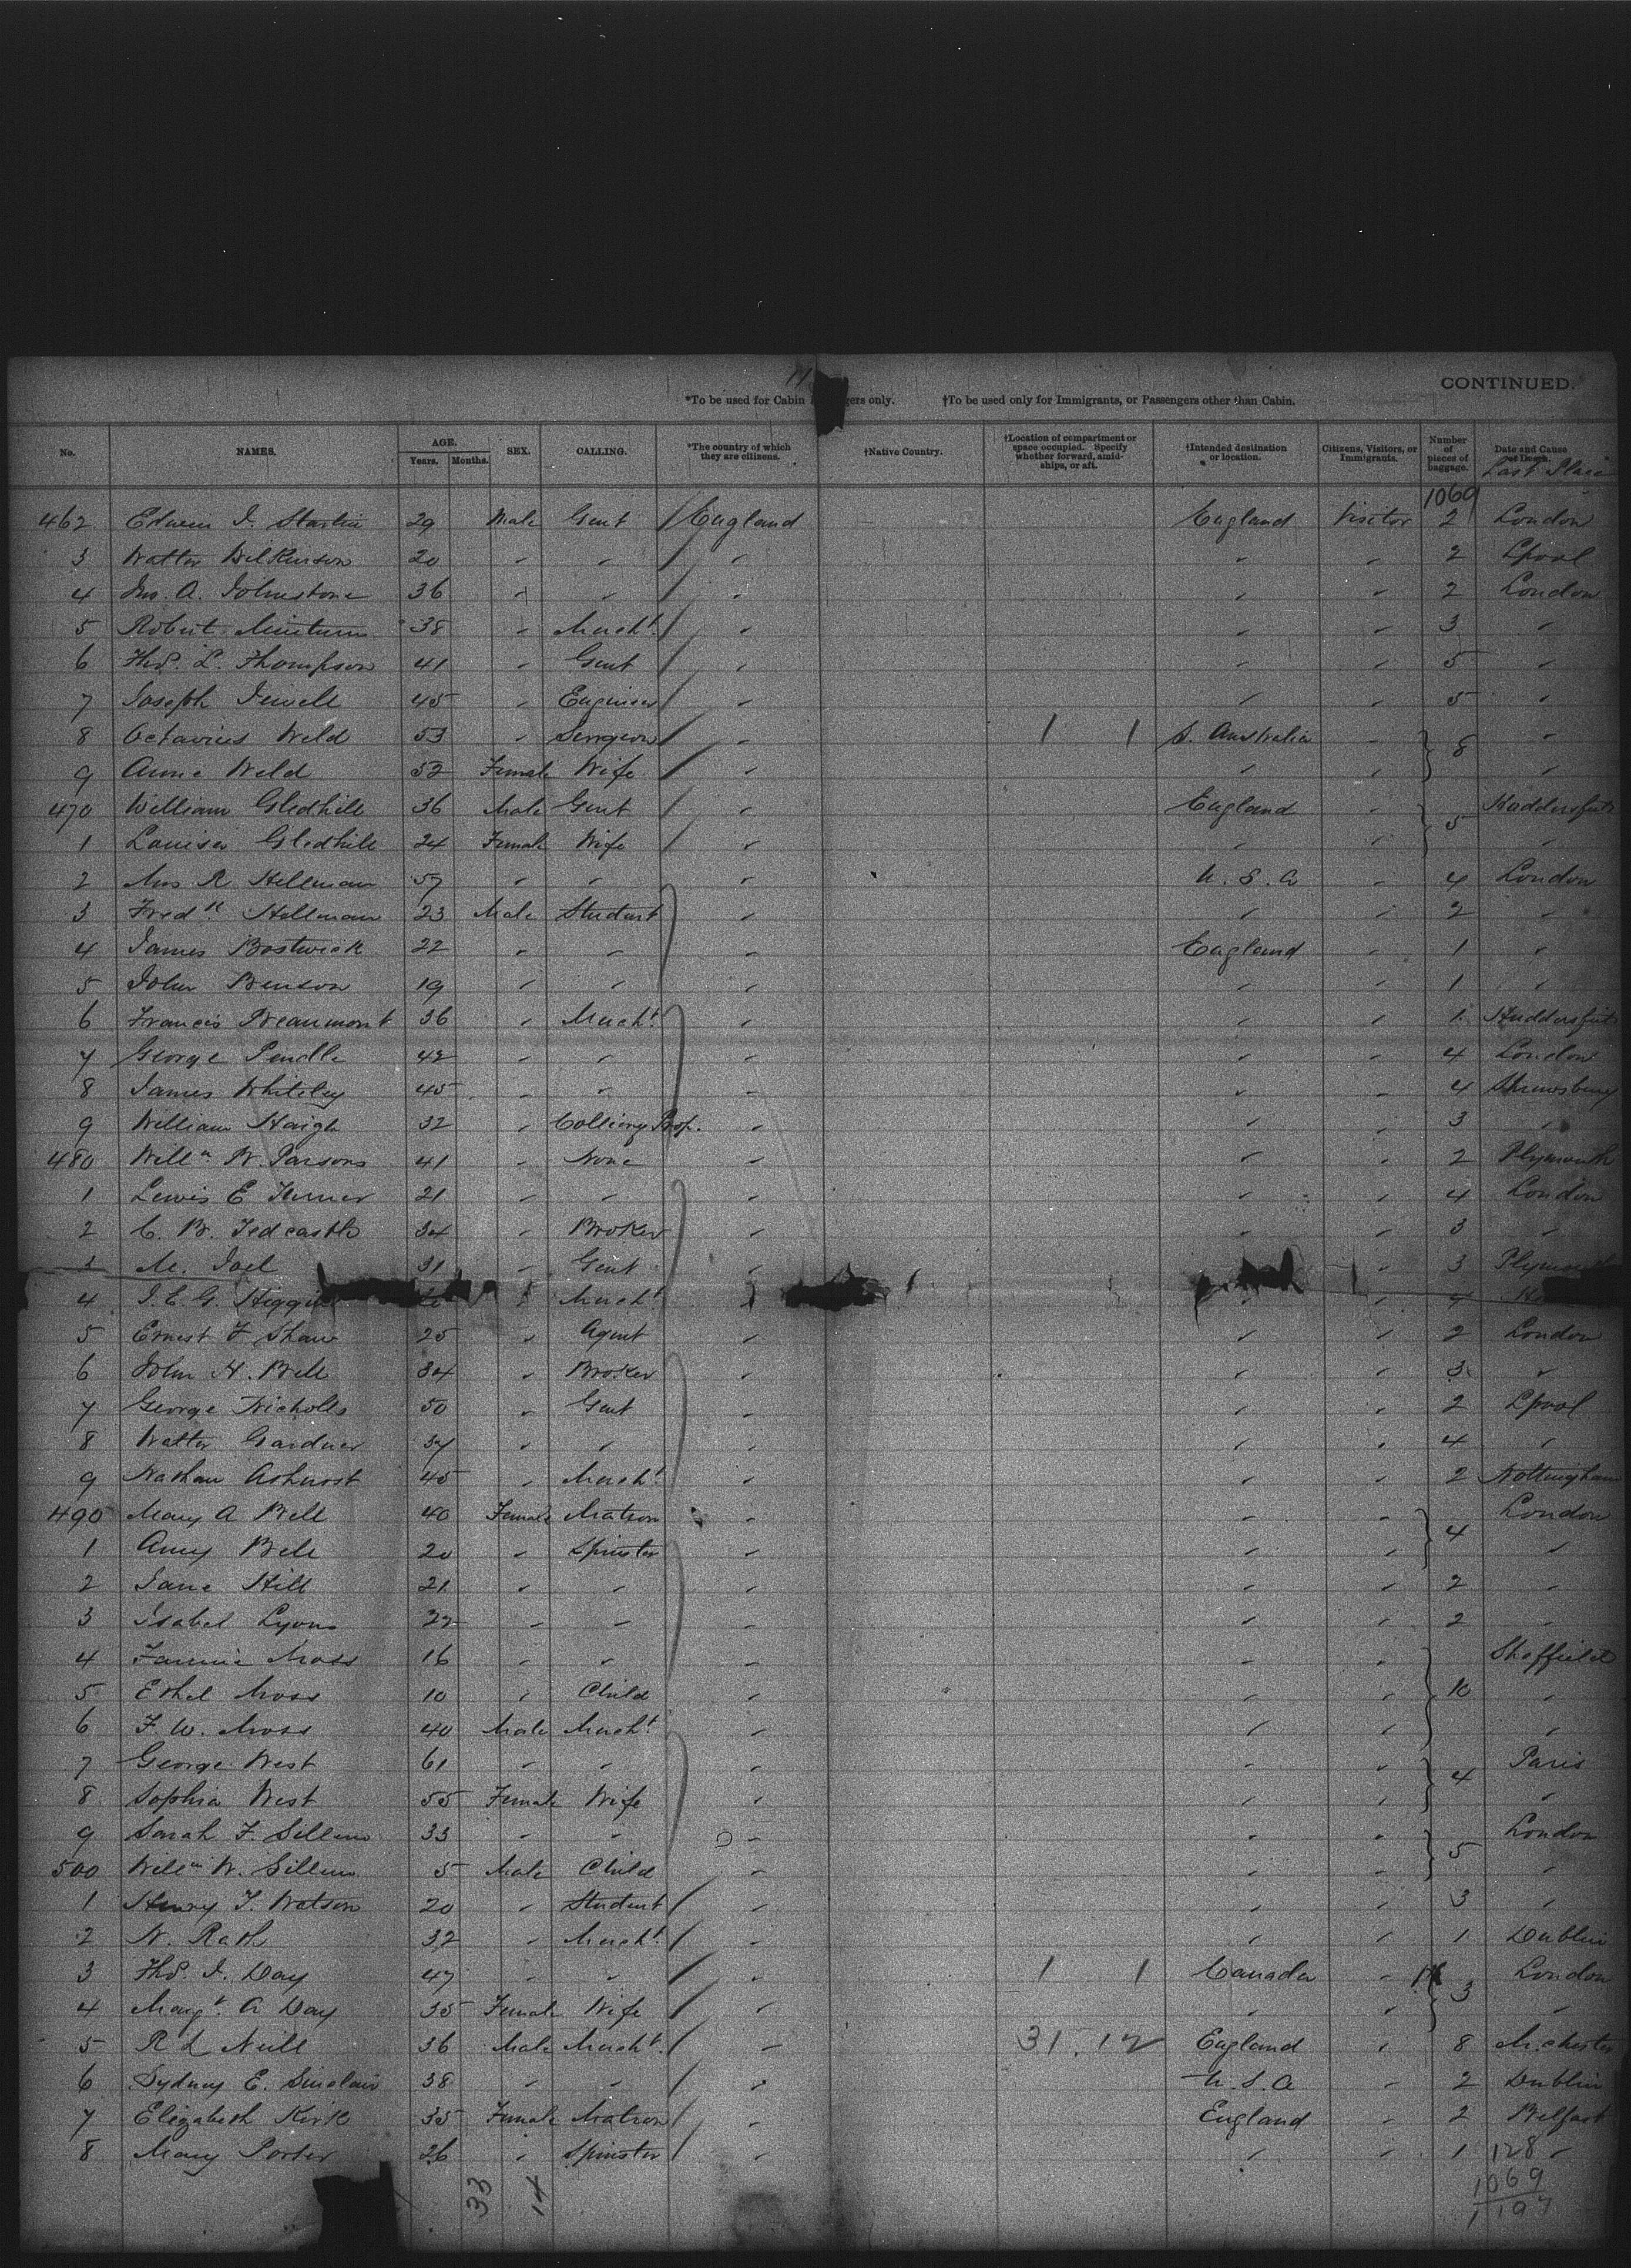 11
CONTINUED.
*To be used for Cabin gers only. †To be used only for Immigrants, or Passengers other than Cabin.
No. NAMES. AGE. Years. Months. SEX. CALLING. *The country of which they are citizens. †Native Country. †Location of compartment or space occupied. Specify whether forward, amidships, or aft. †Intended destination or location. Citizens, Visitors, or Immigrants. Number of pieces of baggage. Date and Cause of Death. Last Place
1069
462 Edwin J. Startin 29 Male Gent England England Visitor 2 London
3 Walter Wilkinson 20 " " " " " 2 Lpool
4 Jno. A. Johnstone 36 " " " " " 2 London
5 Robert Minturn 38 " Mercht. " " " 3 "
6 Thos. L. Thompson 41 " Gent " " " 5 "
7 Joseph Jewell 45 " Engineer " " " 5 "
8 Octavius Weld 53 " Surgeon " 1 1 S. Australia " 8 "
9 Anne Weld 52 Female Wife " " " "
470 William Gledhill 36 Male Gent " England " 5 Huddersfield
1 Louisa Gledhill 24 Female Wife " " " "
2 Mrs R Hellman 57 " " " U.S.A " 4 London
3 Fredk. Hellman 23 Male Student " " " 2 "
4 James Bostwick 22 " " " England " 1 "
5 John Benson 19 " " " " " 1 "
6 Francis Beaumont 36 " Mercht. " " " 1 Huddersfield
7 George Pendle 42 " " " " " 4 London
8 James Whiteley 45 " " " " " 4 Shrewsbury
9 William Haigh 32 " Colliery Prop. " " " 3 "
480 Willm W. Parsons 41 " None " " " 2 Plymouth
1 Lewis E Turner 21 " " " " " 4 London
2 C. B. Tedcastle 34 " Broker " " " 3 "
3 M. Joel 31 " Gent " " 3 Plymouth
4 J. E. G. " Mercht. " " " 4
5 Ernest F Shaw 25 " Agent " " " 2 London
6 John H. Bell 34 " Broker " " " 3 "
7 George Nicholls 50 " Gent " " " 2 Lpool
8 Walter Gardner 37 " " " " " 4 "
9 Nathan Ashurst 45 " Mercht. " " " 2 Nottingham
490 Mary A Bell 40 Female Matron " " " 4 London
1 Amy Bell 20 " Spinster " " " "
2 Jane Hill 21 " " " " " 2 "
3 Isabel Lyons 22 " " " " " 2 "
4 Fannie Moss 16 " " " " " Sheffield
5 Ethel Moss 10 " Child " " " 10 "
6 F. W. Moss 40 Male Mercht. " " " "
7 George West 61 " " " " " 4 Paris
8 Sophia West 55 Female Wife " " " "
9 Sarah F. Sillem 33 " " " " " 5 London
500 Willm W. Sillem 5 Male Child " " " "
1 Henry F. Watson 20 " Student " " " 3 "
2 N. Rath 32 " Mercht. " " " 1 Dublin
3 Thos. J. Day 47 " " " 1 1 Canada " 3 London
4 Margt. A Day 35 Female Wife " " " "
5 R L Neill 36 Male Mercht. " 31. 12 England " 8 M.chester
6 Sydney E. Sinclair 38 " " " U.S.A " 2 Dublin
7 Elizabeth Kirk 35 Female Matron " England " 2 Belfast
8 Mary Porter 26 " Spinster " " " 1 "
33 14
128
1069
1197